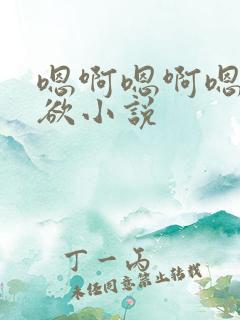 嗯啊嗯啊嗯
欲小说
丁一丙
未经同意禁止转载